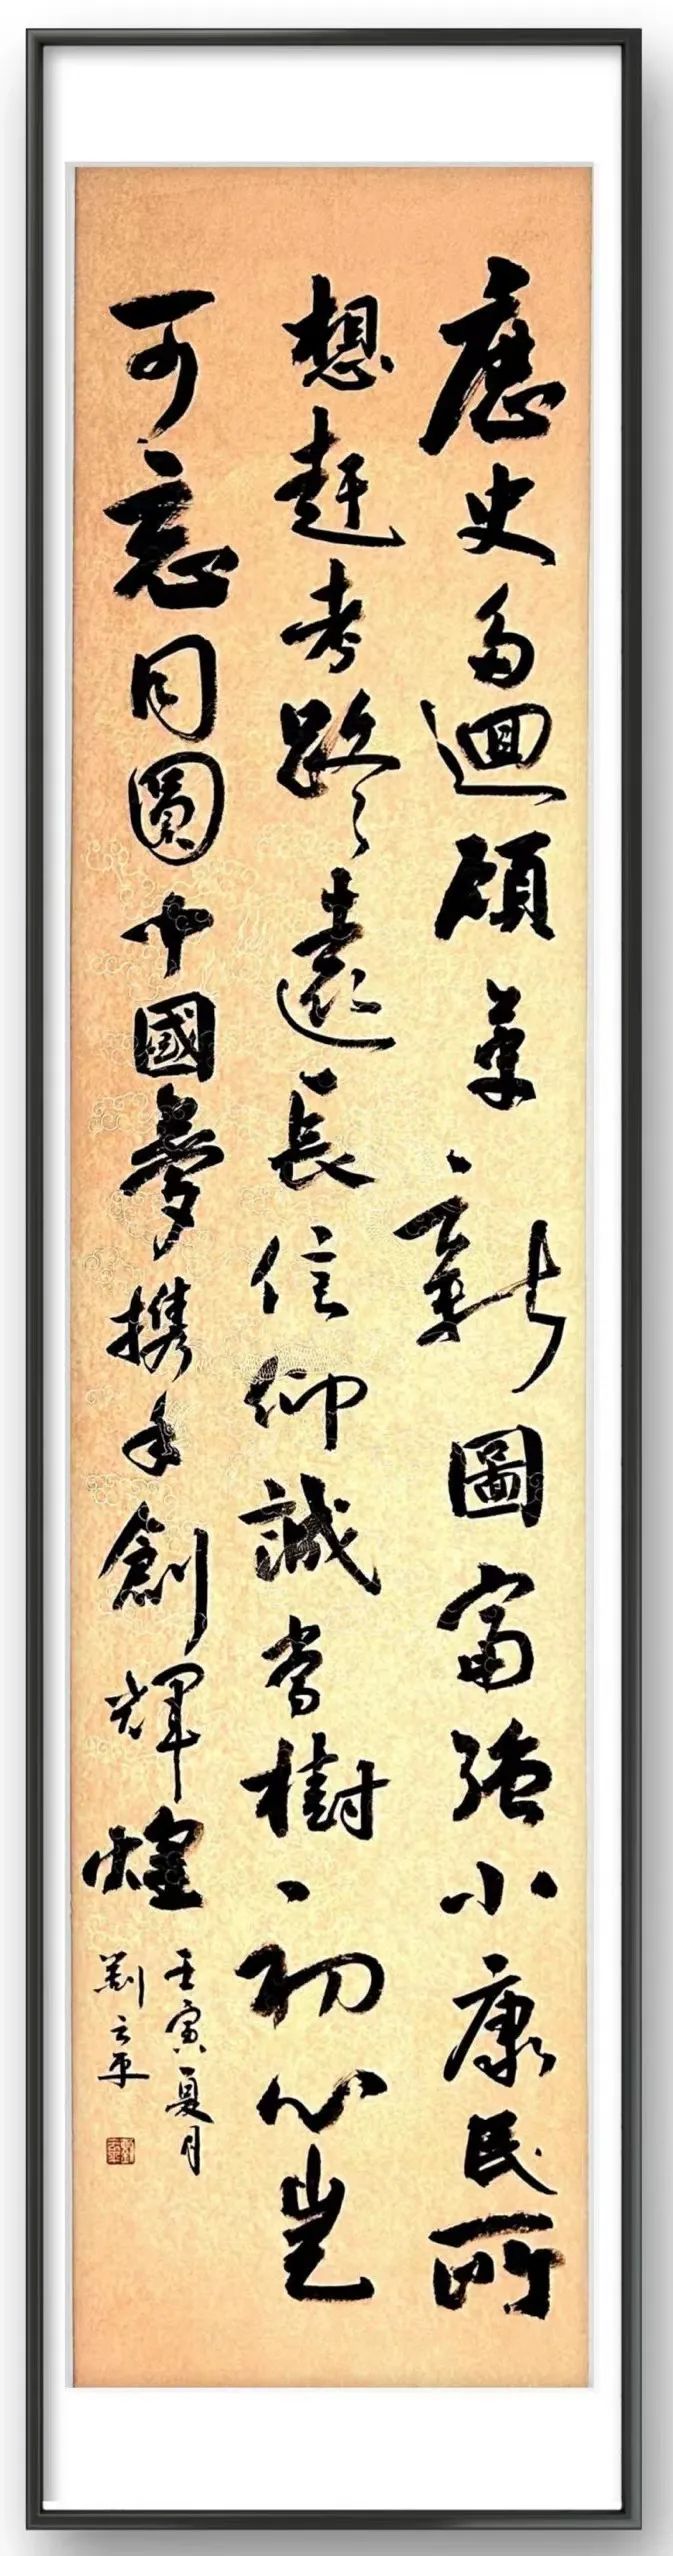 歷史多迴顧革新圖富强小康民所
想赶考路遠長信仰誠當樹初心豈
可忘同圓中國夢携手創輝煌
壬寅夏月
劉云平